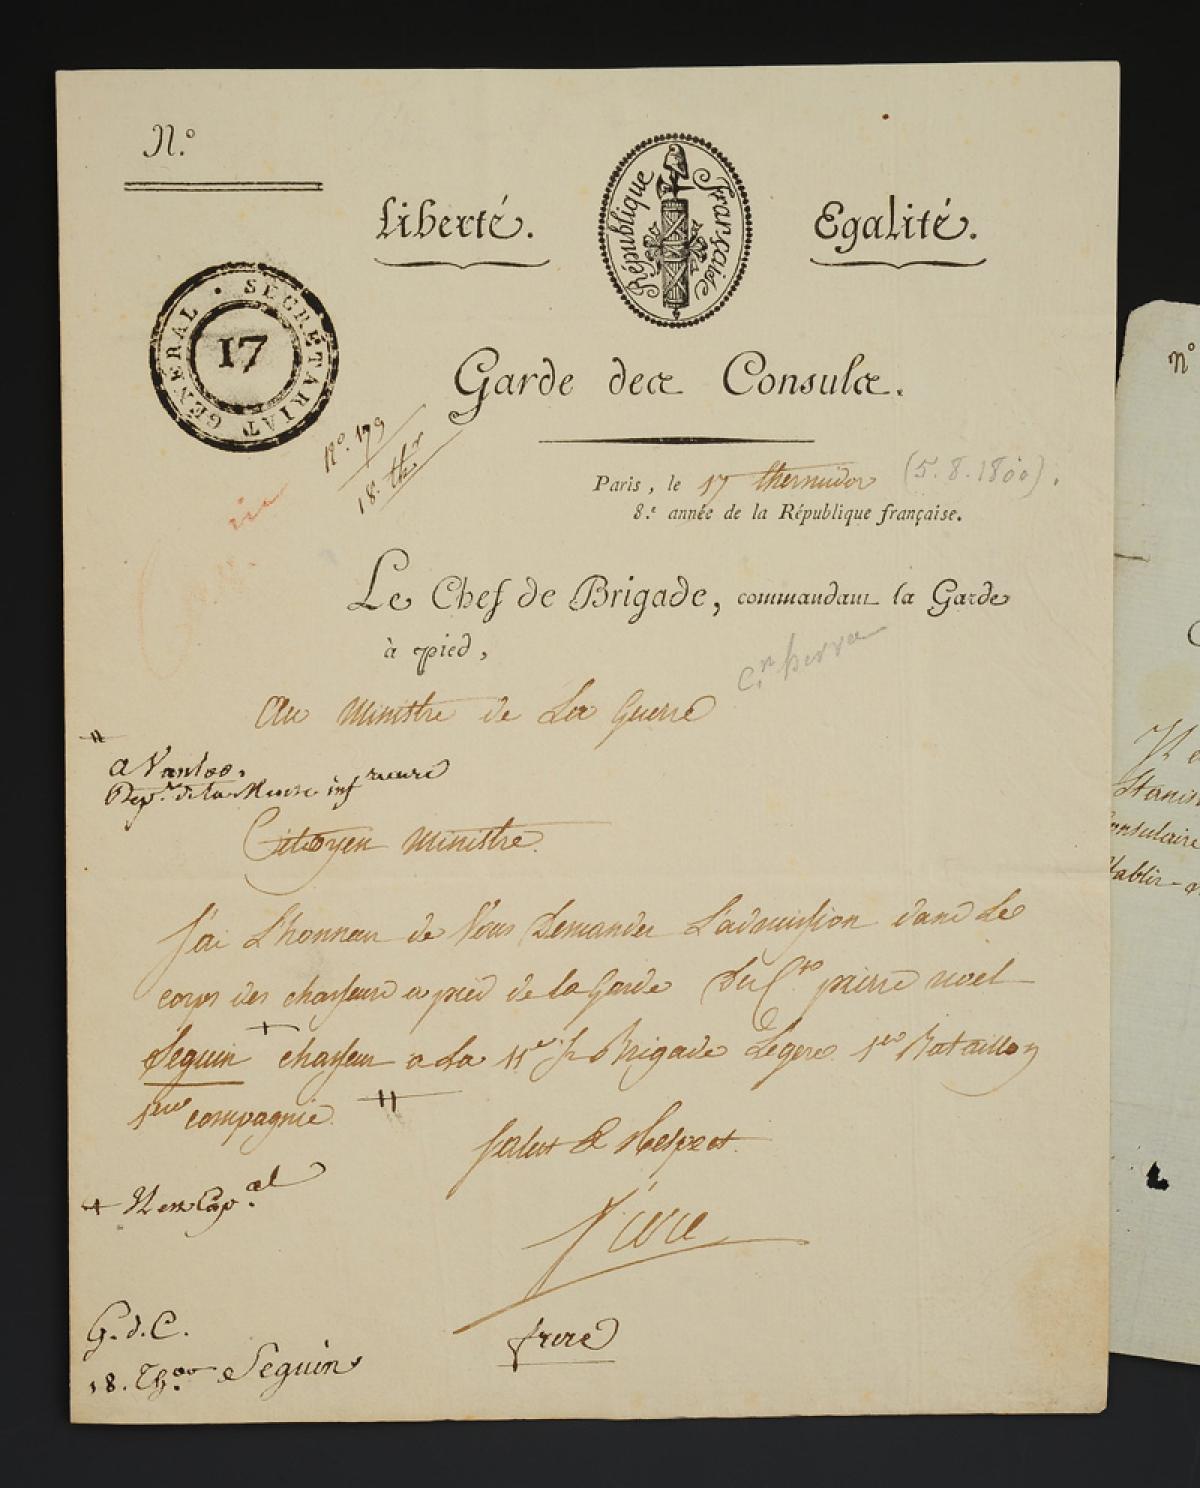 N.º
Liberté.
République Française
Egalité.
SECRÉTARIAT GÉNÉRAL
17
Garde des Consuls.
Nº. 179
18. thr
Paris, le 17 thermidor (5.8.1800).
8.e année de la République française.
Le Chef de Brigade, commandant la Garde
à pied,
Au Ministre de La Guerre
a Nantes.
Dep.t de la
Citoyen Ministre.
J'ai L'honneur de Vous Demander L'admission dans Le
corps des chasseurs a pied de la Garde Du C.en pierre noel
Seguin + chasseur a La 11e 1/2 Brigade Legere 1er Bataillon
1ere compagnie. //
Salut & Respect.
+ N est Cap.al
frere
frere
G. d. C.
18. Th.or Seguin
nº
Stanis
onsulaire
tablir-